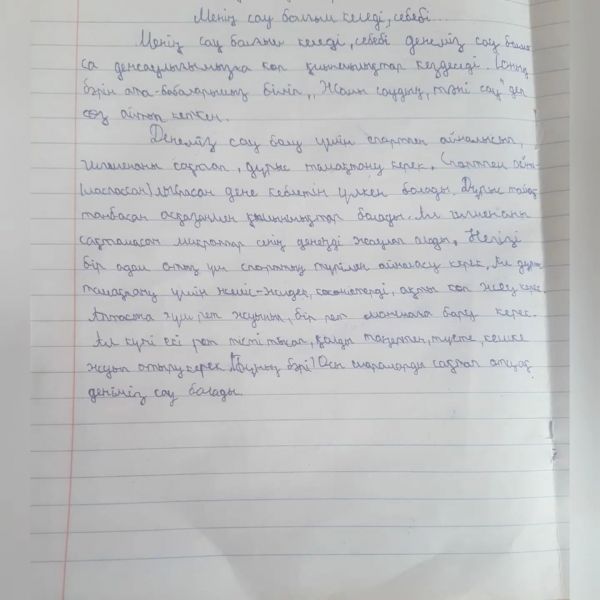 Менің сау болғым келеді, себебі...
Менің сау болғым келеді, себебі денеміз сау болма
са денсаулығымызға көп қиыншылықтар кездеседі. Соның
бәрін ата-бабаларымыз біліп, "Жаны саудың, тәні сау" деп
сөз айтып кеткен.
Денеміз сау болу үшін спортпен айналысып,
гигиенаны сақтап, дұрыс тамақтану керек. Спортпен айна
лыспасан дене кебиетін үлкен болады. Дұрыс тамақ
танбасан асқазанмен қиыншылықтар болады. Ал гигиенаны
сақтамасан микроптар сенің денеңді жаулап алады. Негізі
бір адам отыз үш спорттың түрімен айналысу керек. Ал дұрыс
тамақтану үшін жеміс-жидек, көкөністерді, ақты көп жеу керек.
Аптаста үш рет жуынып, бір рет моншаға бару керек.
Ал күні екі рет тісті тысап, қолды таңертен, түсте, кешке
жуып отыру керек. Бұның бәрі Осы шараларды сақтап
деніміз сау болады.